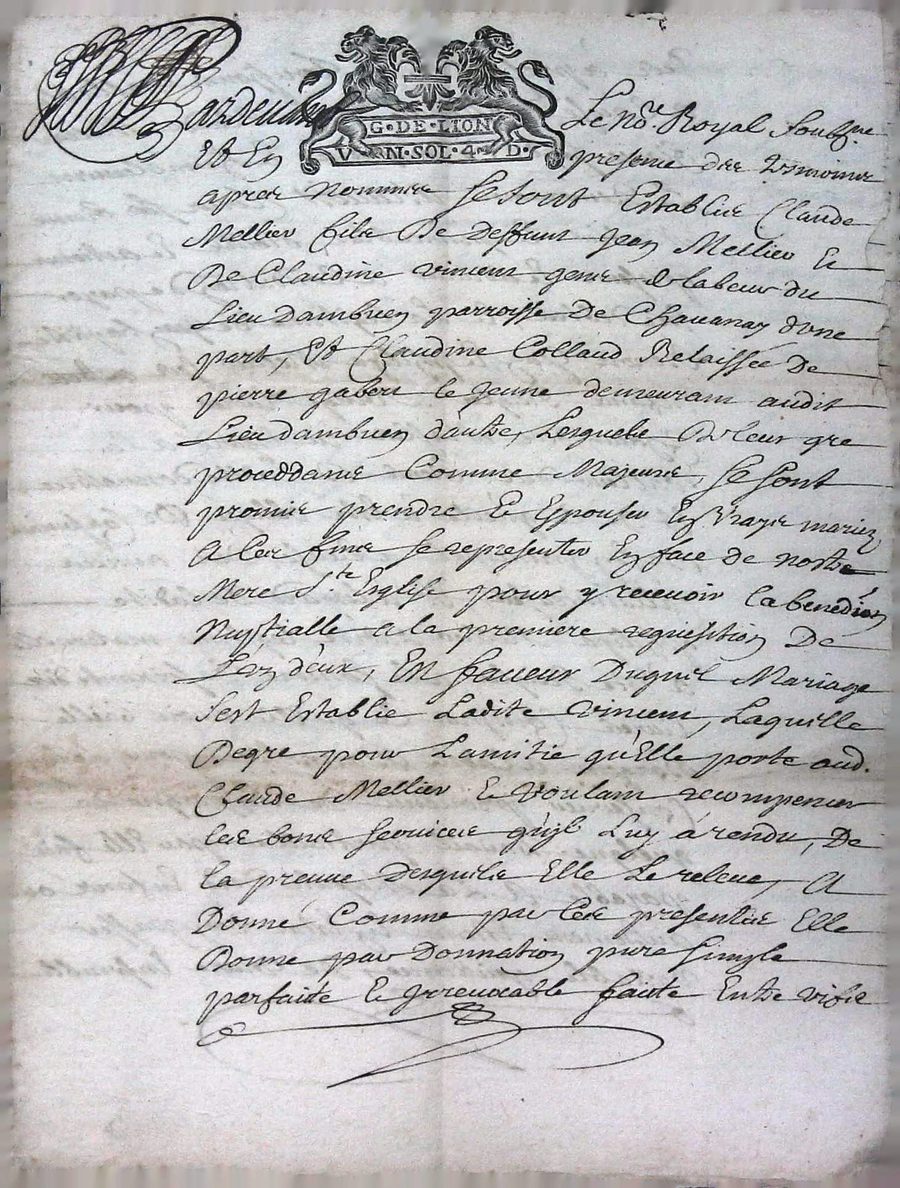 Pardevant Le No.re Royal Soub.ne
G·DE·LION
V N·SOL·4·D·
Et En presence des tesmoins
apres nommes se sont Establis Claude
Mellier fils De deffunt Jean Mellier et
De Claudine vincent gens de labeur du
Lieu dambuen parroisse De Chavanay dune
part, Et Claudine Collaud Relaissée De
pierre gabert le jeune demeurant audit
Lieu dambuen dautre, Lesquels De leur gre
proceddants Comme Majeurs, se sont
promis prendre et Espouser En vrays mariez
A ces fins se representer En face de nostre
Mere S.te Esglise pour y recevoir la benediōn
Nuptialle a la premiere requisition De
L'un deux, En faveur Duquel Mariage
sest Establie Ladite vincent, Laquelle
Degre pour Lamitie qu'Elle porte aud.
Claude Mellier et voulant recompenser
les bons services quil Luy à rendu, De
la preuve desquels Elle Le releve, A
Donné Comme par ces presentes Elle
Donne par Donnation pure simple
parfaite et Irrevocable faite Entre vifs